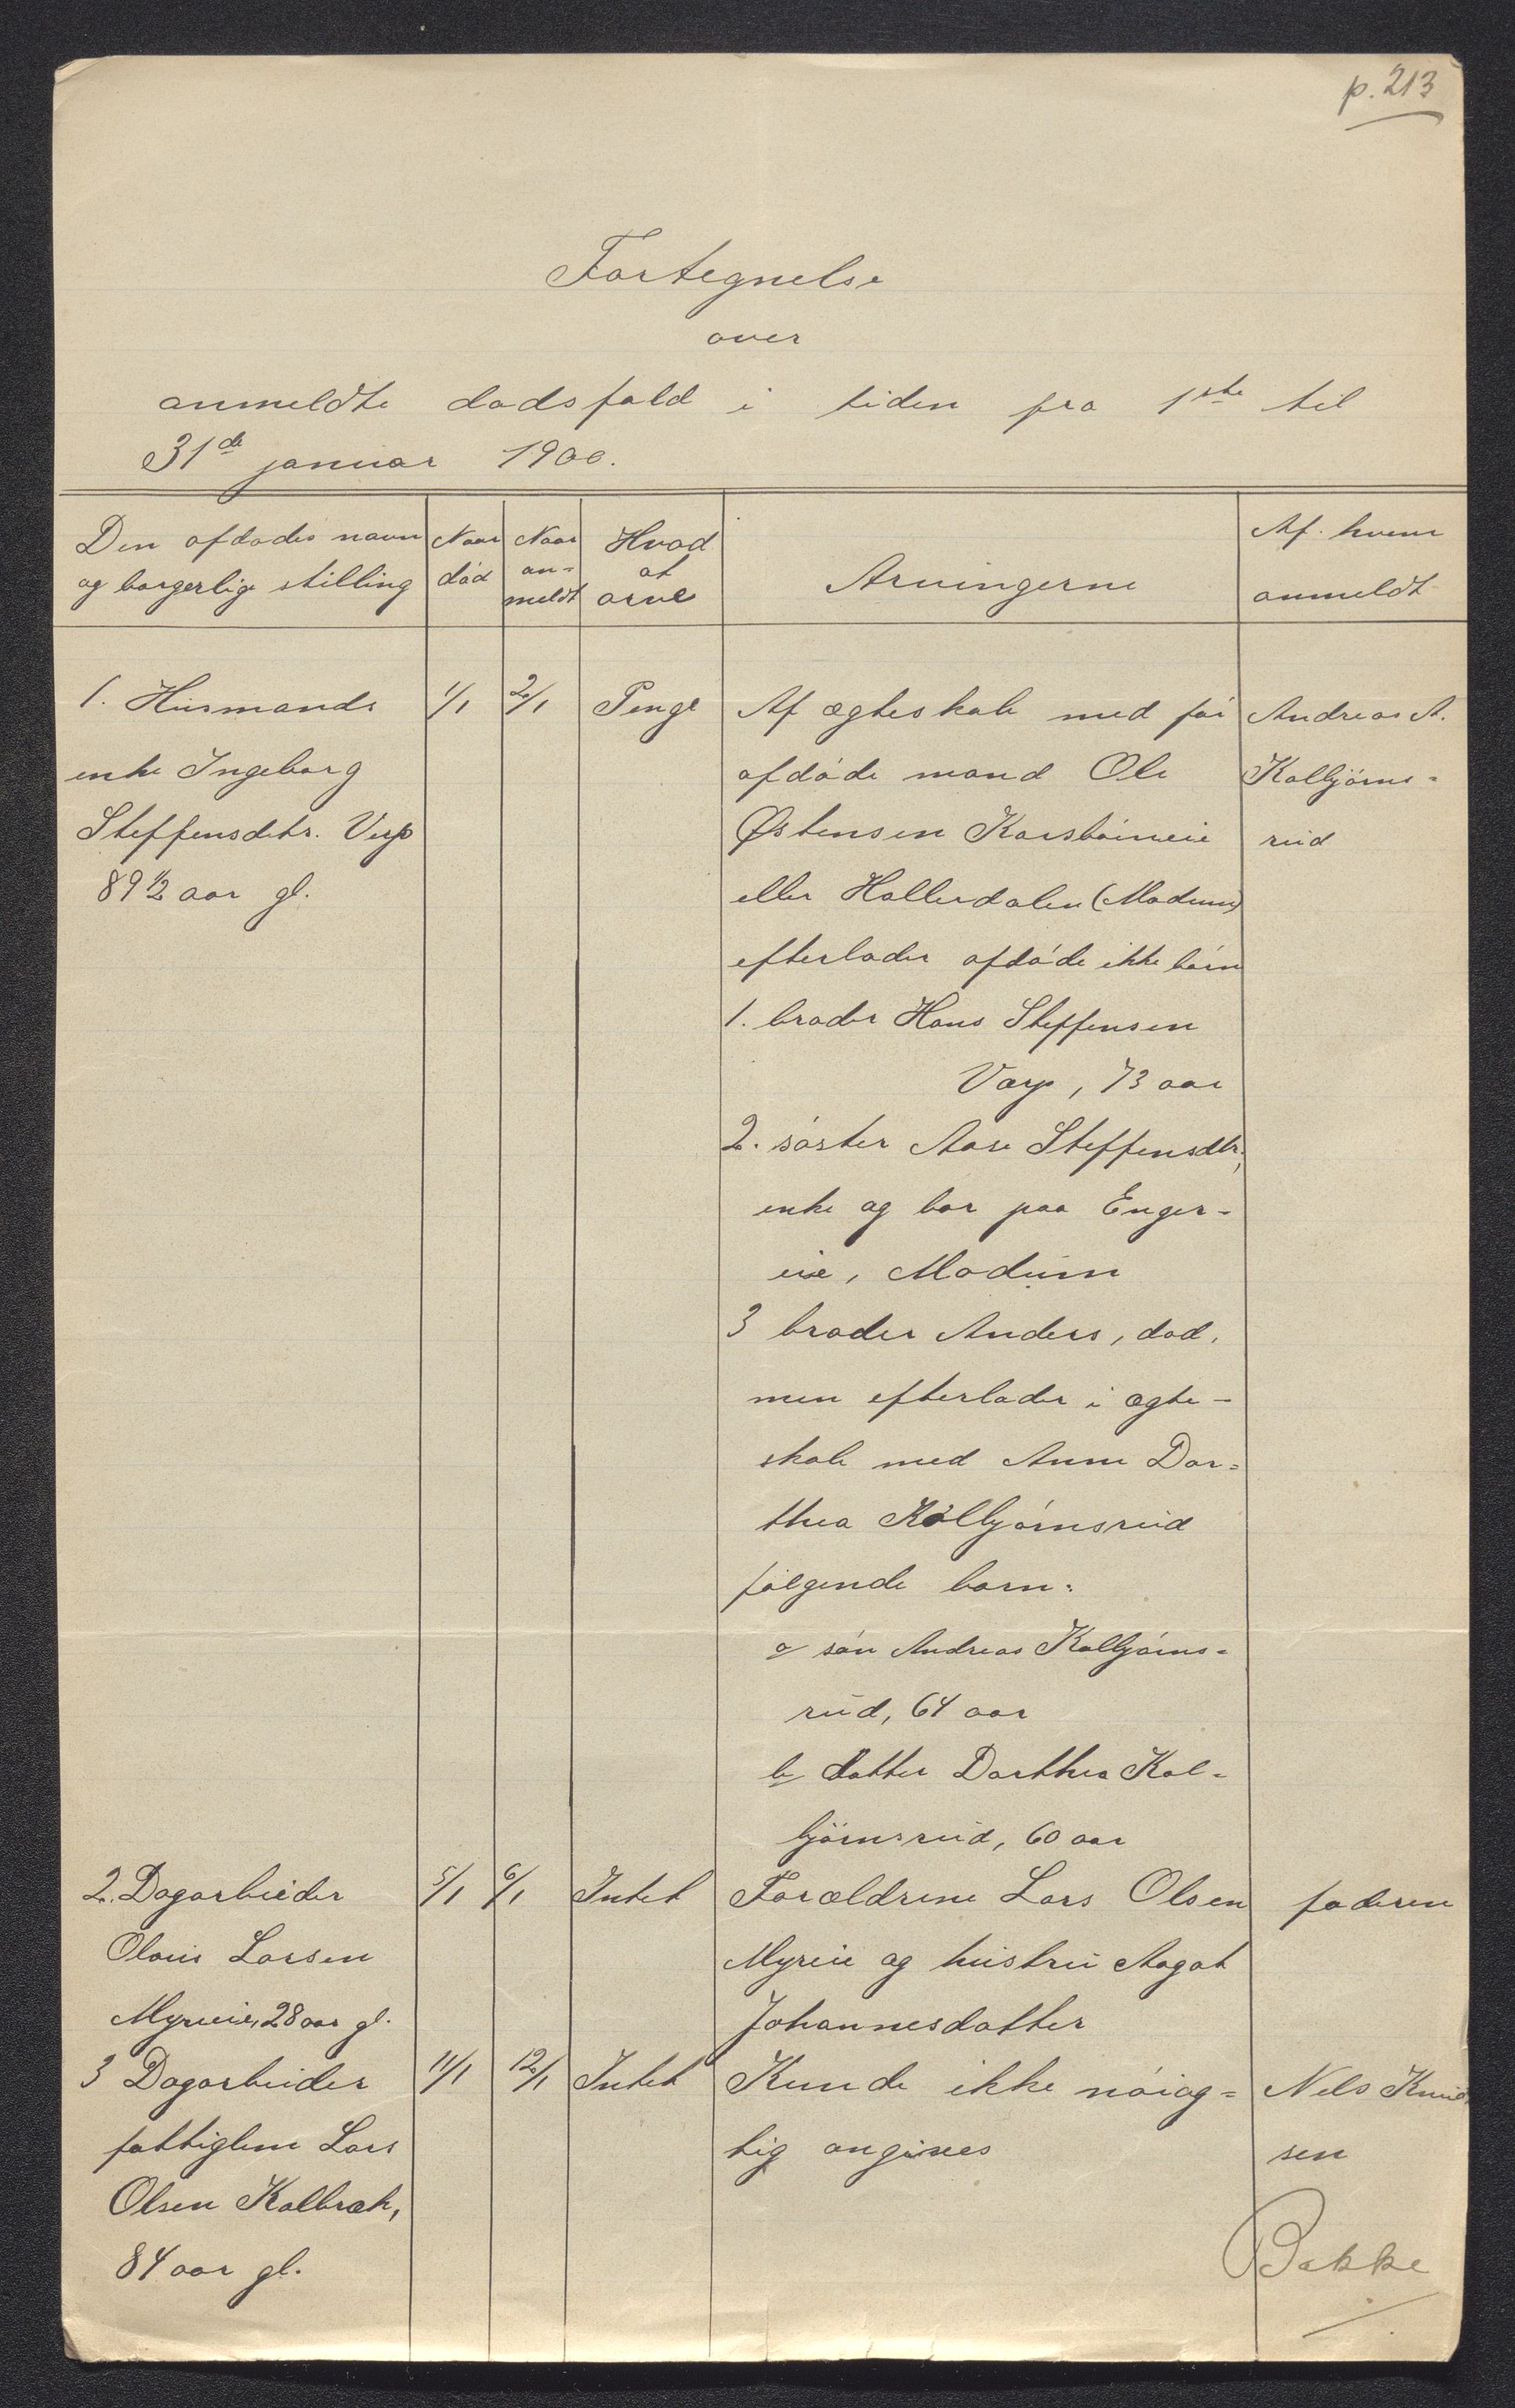 p. 213
Fortegnelse
over
anmeldte dødsfald i tiden fra 1ste til
31de januar 1900.
Den afdødes navn
og borgerlige stilling
Naar
død
Naar
an-
meldt
Hvad
at
arve
Arvingerne
Af hvem
anmeldt
1. Husmands
enke Ingeborg
Steffensdtr. Verp
89 1/2 aar gl.
1/1
2/1
Penge
Af ægteskab med før
afdøde mand Ole
Østensen Korsbøineie
eller Hallerdalen (Modum)
efterlader afdøde ikke børn
1. broder Hans Steffensen
Verp, 73 aar
2. søster Aase Steffensdtr.,
enke og bor paa Enger-
eie, Modum
3 broder Anders, død,
men efterlader i ægte-
skab med Anne Dor-
thea Kolbjørnsrud
følgende børn:
a søn Andreas Kolbjørns-
rud, 64 aar
b datter Dorthea Kol-
bjørnsrud, 60 aar
Andreas A.
Kolbjørns-
rud
2. Dagarbeider
Olaus Larsen
Myreeie, 28 aar gl.
5/1
6/1
Intet
Forældrene Lars Olsen
Myreie og hustru Aagot
Johannesdatter
faderen
3 Dagarbeider
fattiglem Lars
Olsen Kalbræk,
84 aar gl.
11/1
12/1
Intet
Kunde ikke nøiag-
tig angives
Nels Knud
sen
Bakke